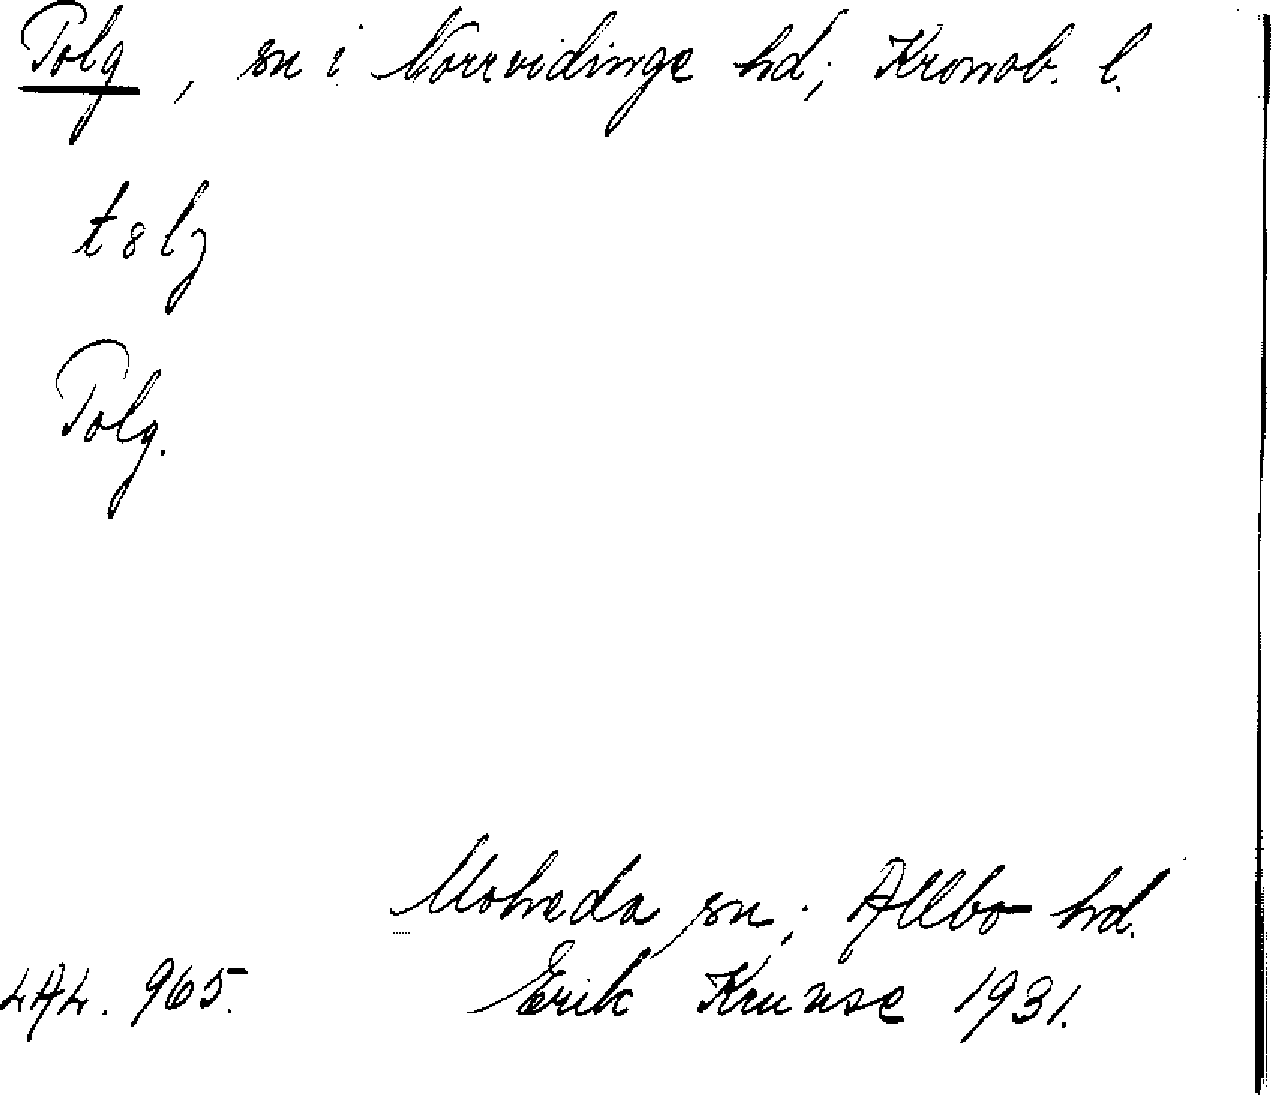 Tolg, sn i Norrvidinge hd; Kronob. l.
t8lj
Tolg.
Moheda sn; Allbo hd.
LAL. 965. Erik Kruuse 1931.